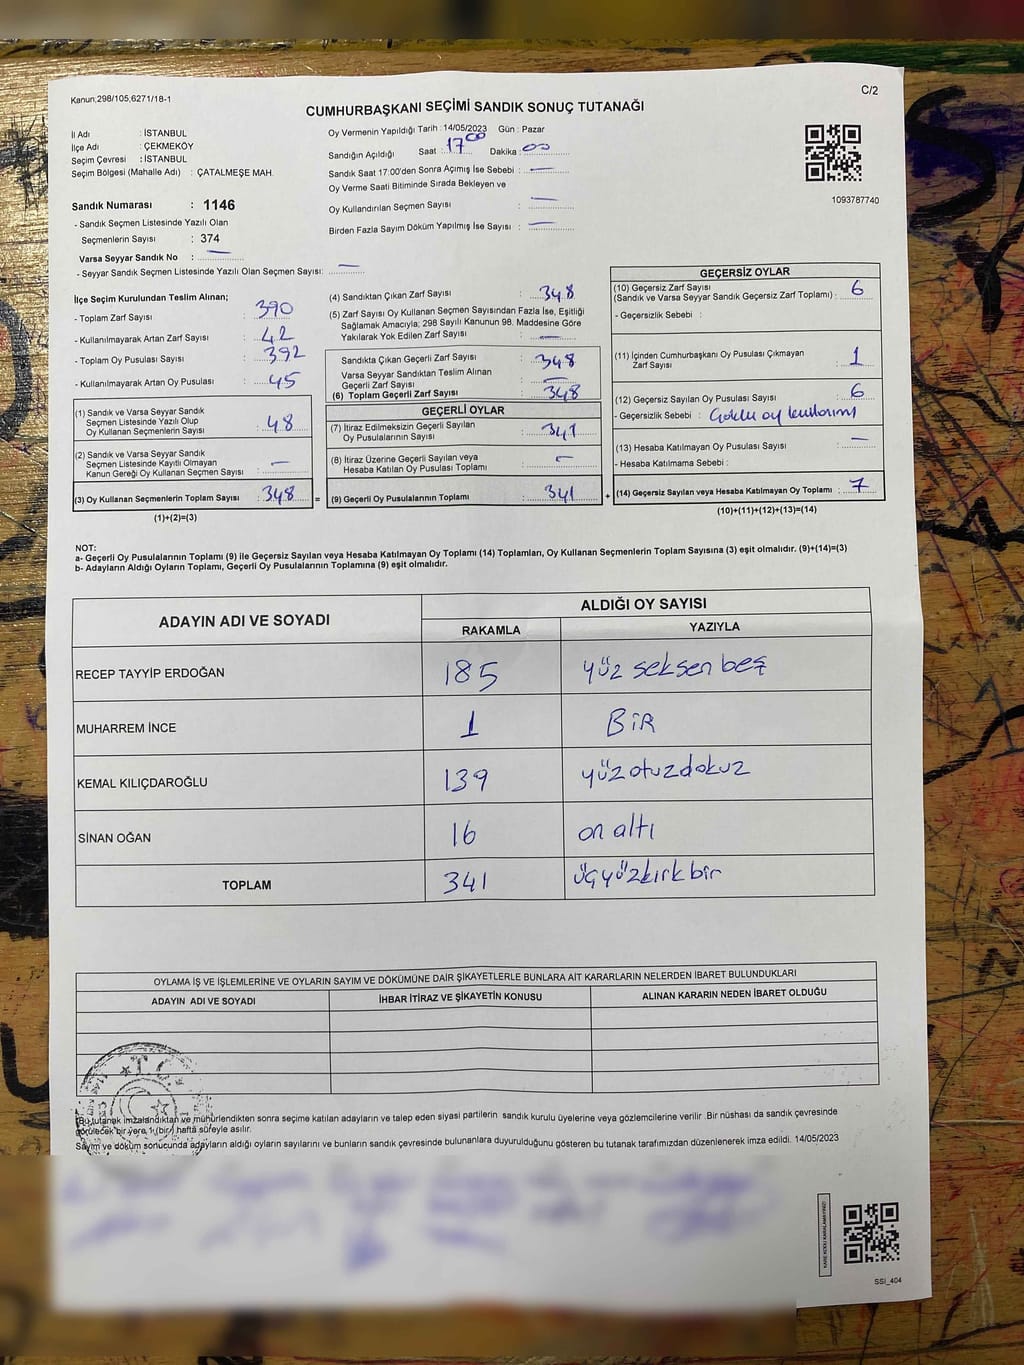 Kanun;298/105,6271/18-1
C/2
CUMHURBAŞKANI SEÇİMİ SANDIK SONUÇ TUTANAĞI
İl Adı : İSTANBUL
İlçe Adı : ÇEKMEKÖY
Seçim Çevresi : İSTANBUL
Seçim Bölgesi (Mahalle Adı) : ÇATALMEŞE MAH.
Sandık Numarası : 1146
- Sandık Seçmen Listesinde Yazılı Olan
Seçmenlerin Sayısı : 374
Varsa Seyyar Sandık No : —
- Seyyar Sandık Seçmen Listesinde Yazılı Olan Seçmen Sayısı: —
Oy Vermenin Yapıldığı Tarih : 14/05/2023 Gün : Pazar
Sandığın Açıldığı Saat : 17 00 Dakika : 00
Sandık Saat 17:00'den Sonra Açımış İse Sebebi : —
Oy Verme Saati Bitiminde Sırada Bekleyen ve
Oy Kullandırılan Seçmen Sayısı : —
Birden Fazla Sayım Döküm Yapılmış İse Sayısı : —
1093787740
İlçe Seçim Kurulundan Teslim Alınan;
- Toplam Zarf Sayısı : 390
- Kullanılmayarak Artan Zarf Sayısı : 42
- Toplam Oy Pusulası Sayısı : 392
- Kullanılmayarak Artan Oy Pusulası : 45
(1) Sandık ve Varsa Seyyar Sandık
Seçmen Listesinde Yazılı Olup
Oy Kullanan Seçmenlerin Sayısı : 48
(2) Sandık ve Varsa Seyyar Sandık
Seçmen Listesinde Kayıtlı Olmayan
Kanun Gereği Oy Kullanan Seçmen Sayısı : —
(3) Oy Kullanan Seçmenlerin Toplam Sayısı : 348 =
(1)+(2)=(3)
(4) Sandıktan Çıkan Zarf Sayısı : 348
(5) Zarf Sayısı Oy Kullanan Seçmen Sayısından Fazla İse, Eşitliği
Sağlamak Amacıyla; 298 Sayılı Kanunun 98. Maddesine Göre
Yakılarak Yok Edilen Zarf Sayısı : —
Sandıkta Çıkan Geçerli Zarf Sayısı : 348
Varsa Seyyar Sandıktan Teslim Alınan
Geçerli Zarf Sayısı : —
(6) Toplam Geçerli Zarf Sayısı : 348
GEÇERLİ OYLAR
(7) İtiraz Edilmeksizin Geçerli Sayılan
Oy Pusulalarının Sayısı : 341
(8) İtiraz Üzerine Geçerli Sayılan veya
Hesaba Katılan Oy Pusulası Toplamı : —
(9) Geçerli Oy Pusulalarının Toplamı : 341 +
GEÇERSİZ OYLAR
(10) Geçersiz Zarf Sayısı : 6
(Sandık ve Varsa Seyyar Sandık Geçersiz Zarf Toplamı)
- Geçersizlik Sebebi :
(11) İçinden Cumhurbaşkanı Oy Pusulası Çıkmayan
Zarf Sayısı : 1
(12) Geçersiz Sayılan Oy Pusulası Sayısı : 6
- Geçersizlik Sebebi : Çoklu oy kullanımı
(13) Hesaba Katılmayan Oy Pusulası Sayısı : —
- Hesaba Katılmama Sebebi :
(14) Geçersiz Sayılan veya Hesaba Katılmayan Oy Toplamı : 7
(10)+(11)+(12)+(13)=(14)
NOT:
a- Geçerli Oy Pusulalarının Toplamı (9) ile Geçersiz Sayılan veya Hesaba Katılmayan Oy Toplamı (14) Toplamları, Oy Kullanan Seçmenlerin Toplam Sayısına (3) eşit olmalıdır. (9)+(14)=(3)
b- Adayların Aldığı Oyların Toplamı, Geçerli Oy Pusulalarının Toplamına (9) eşit olmalıdır.
ADAYIN ADI VE SOYADI
ALDIĞI OY SAYISI
RAKAMLA YAZIYLA
RECEP TAYYİP ERDOĞAN 185 yüz seksen beş
MUHARREM İNCE 1 BİR
KEMAL KILIÇDAROĞLU 139 yüz otuz dokuz
SİNAN OĞAN 16 on altı
TOPLAM 341 üçyüzkırk bir
OYLAMA İŞ VE İŞLEMLERİNE VE OYLARIN SAYIM VE DÖKÜMÜNE DAİR ŞİKAYETLERLE BUNLARA AİT KARARLARIN NELERDEN İBARET BULUNDUKLARI
ADAYIN ADI VE SOYADI İHBAR İTİRAZ VE ŞİKAYETİN KONUSU ALINAN KARARIN NEDEN İBARET OLDUĞU
T.C.
(Bu tutanak imzalandıktan ve mühürlendikten sonra seçime katılan adayların ve talep eden siyasi partilerin sandık kurulu üyelerine veya gözlemcilerine verilir .Bir nüshası da sandık çevresinde
görülecek bir yere 1 (bir) hafta süreyle asılır.
Sayım ve döküm sonucunda adayların aldığı oyların sayılarını ve bunların sandık çevresinde bulunanlara duyurulduğunu gösteren bu tutanak tarafımızdan düzenlenerek imza edildi. 14/05/2023
KARE KODU KARALAMAYINIZ!
SSİ_404